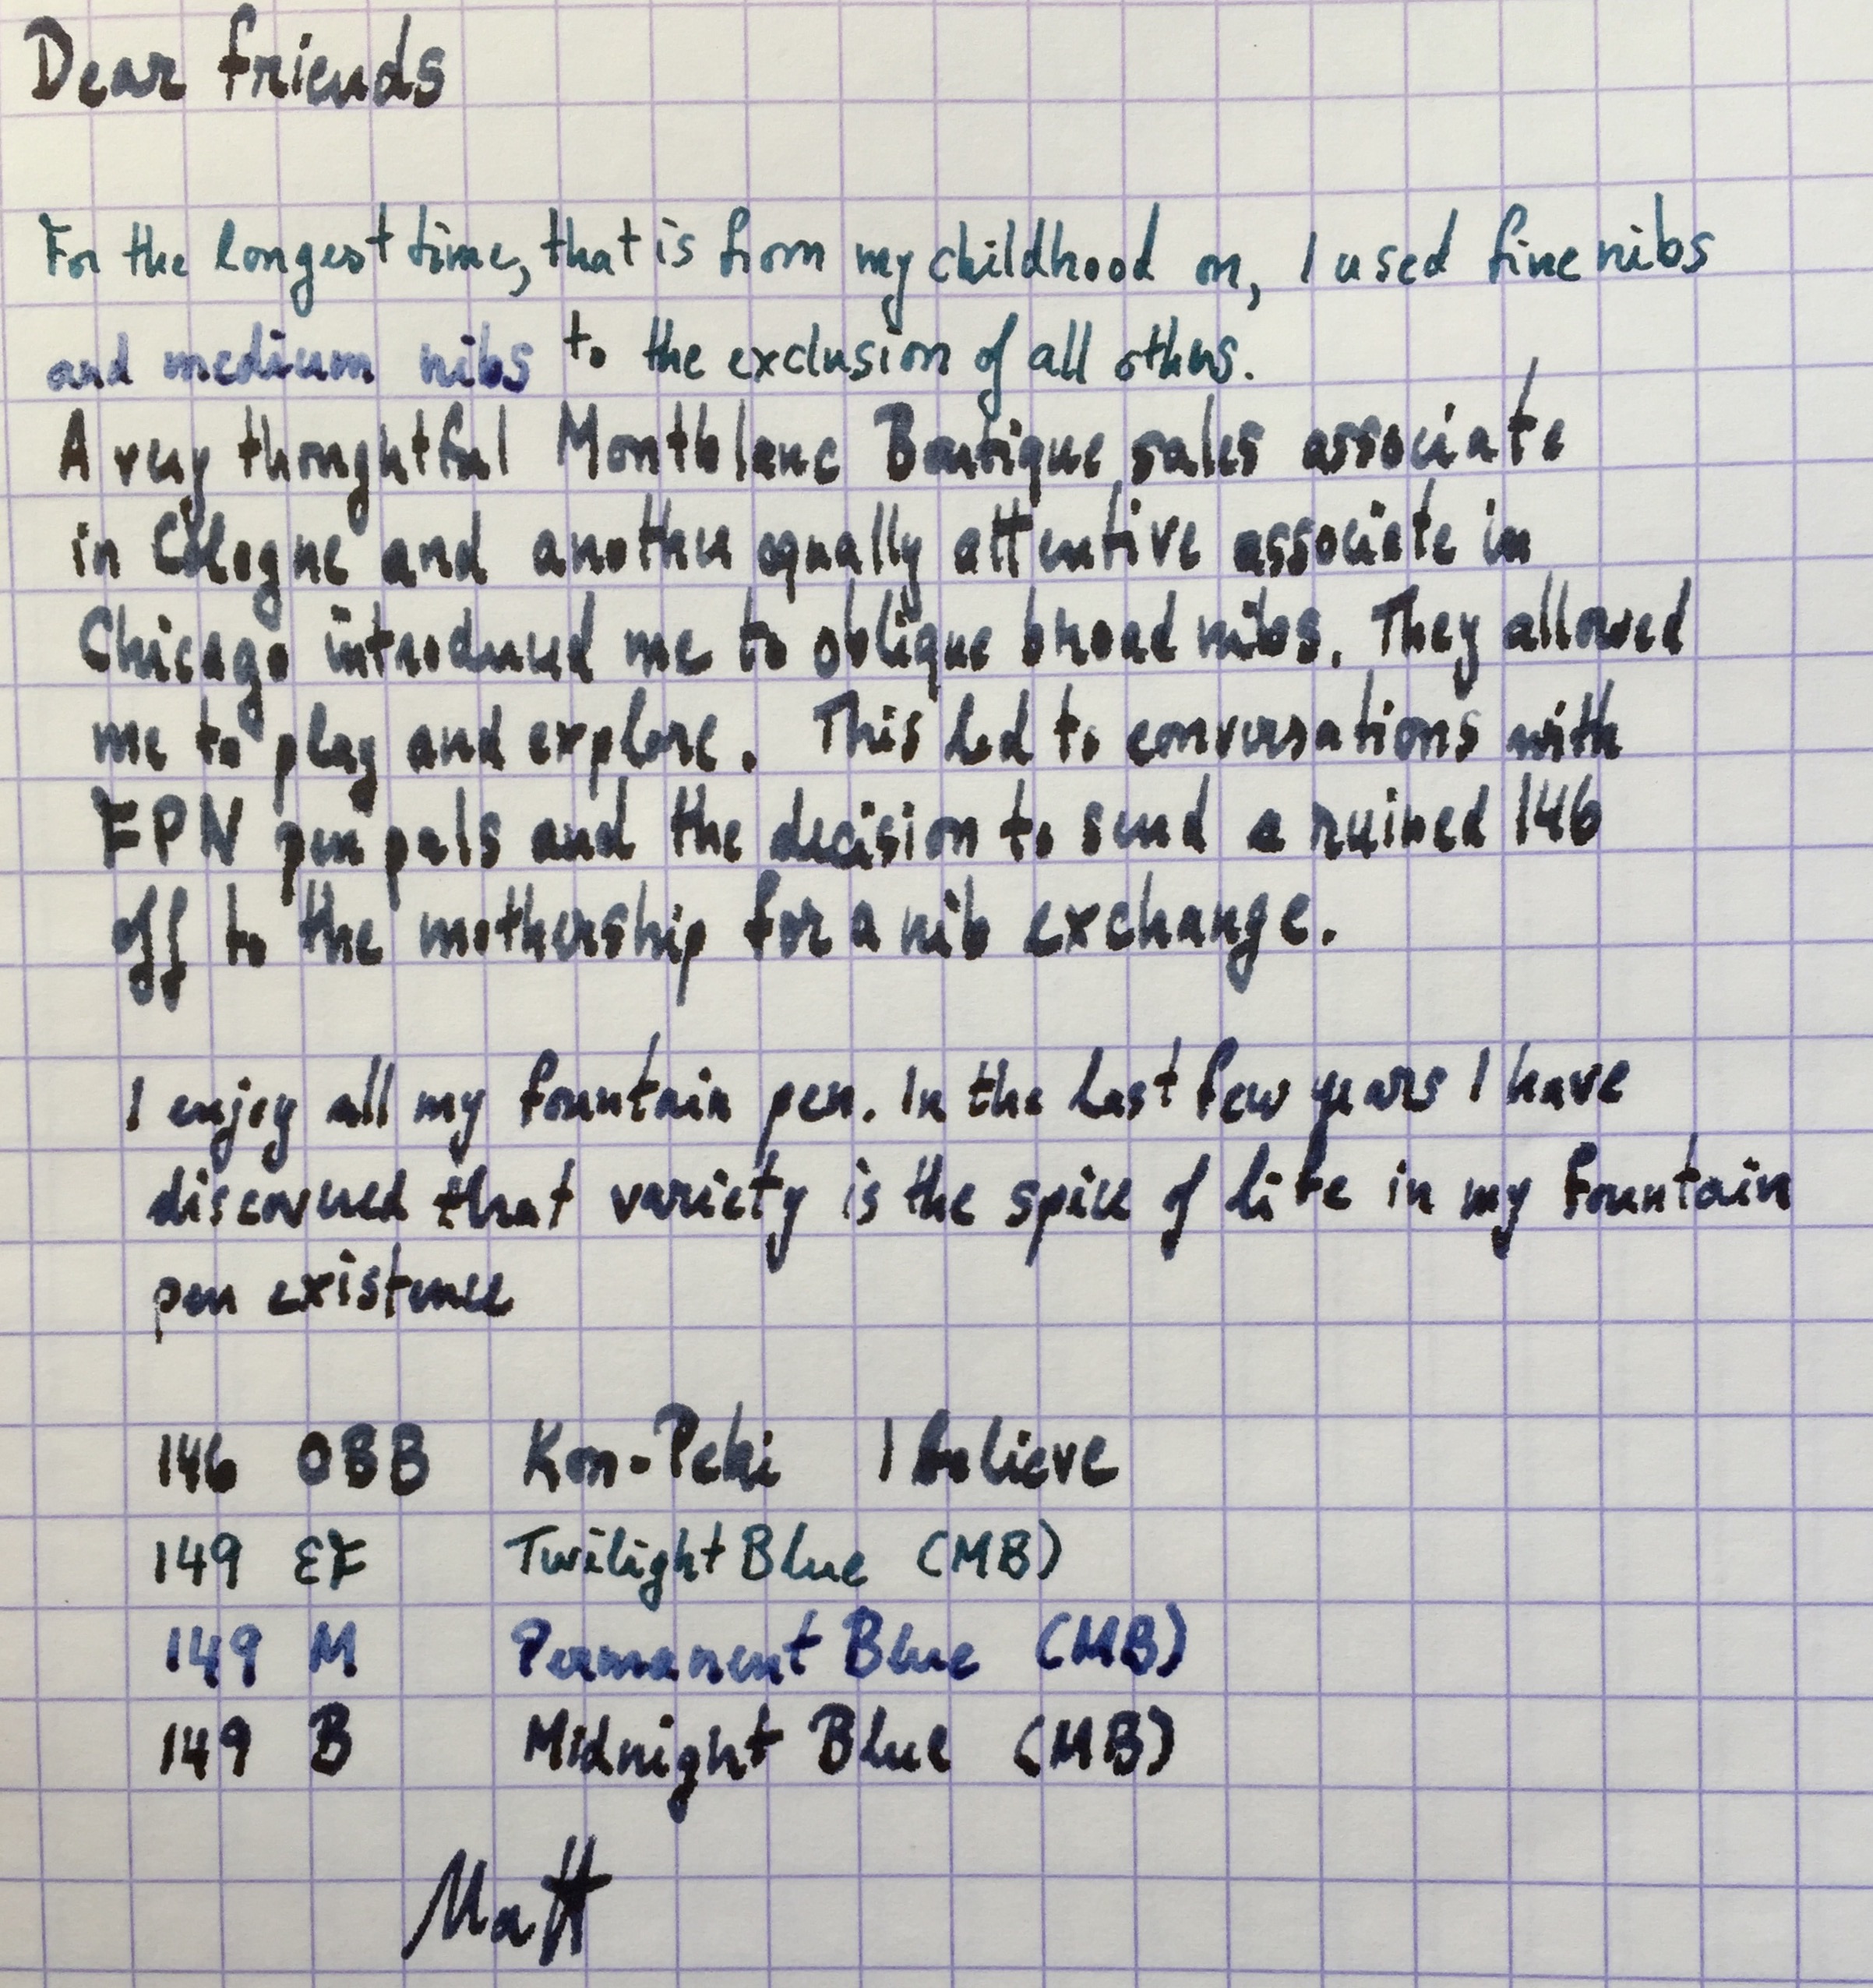 Dear friends
For the longest time, that is from my childhood on, I used fine nibs
and medium nibs to the exclusion of all others.
A very thoughtful Montblanc Boutique sales associate
in Cologne and another equally attentive associate in
Chicago introduced me to oblique broad nibs. They allowed
me to play and explore. This led to conversations with
FPN pen pals and the decision to send a ruined 146
off to the mothership for a nib exchange.
I enjoy all my fountain pen. In the last few years I have
discovered that variety is the spice of life in my fountain
pen existence
146 OBB Kon-Peki I believe
149 EF Twilight Blue (MB)
149 M Permanent Blue (MB)
149 B Midnight Blue (MB)
Matt